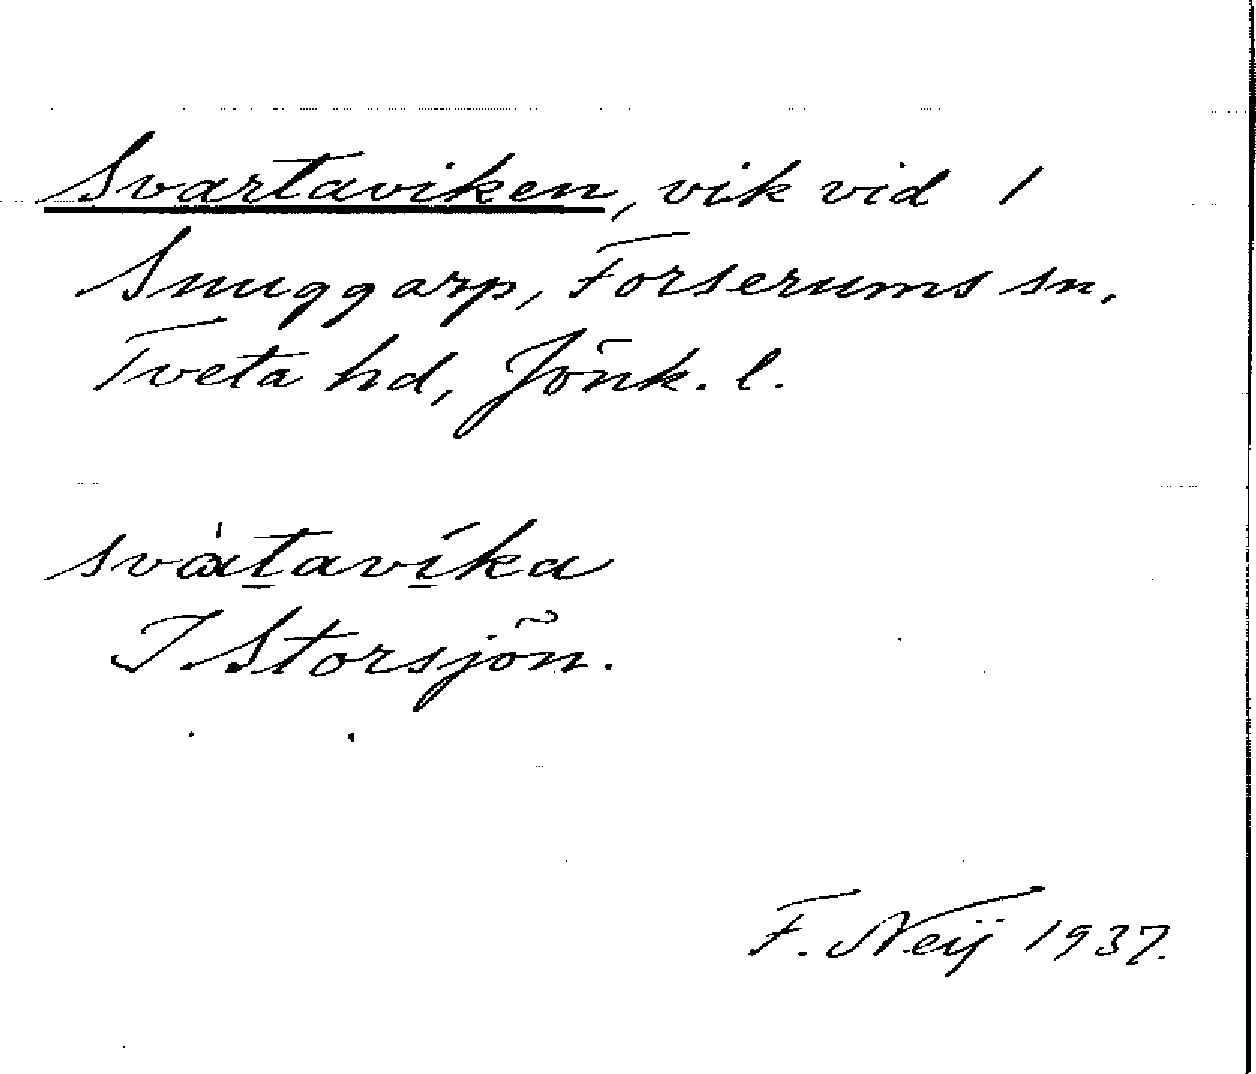 Svartaviken, vik vid 1
Snuggarp, Forserums sn,
Tveta hd, Jönk. l.
svàtavíka
I Storsjön.
F. Neij 1937.